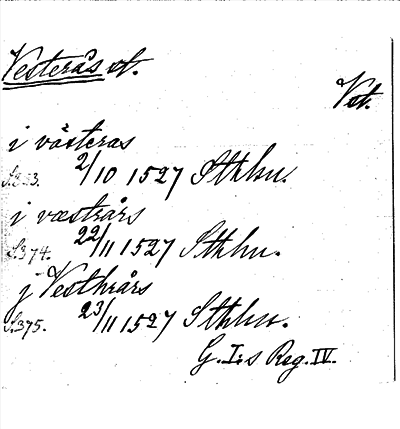 Vesterås st.
Vst.
i västeras
S. 253. 2/10 1527 Sthlm.
j væstrårs
S. 374. 22/11 1527 Sthlm.
j Vesthrårs
S. 375. 23/11 1527 Sthlm.
G. I:s Reg. IV.